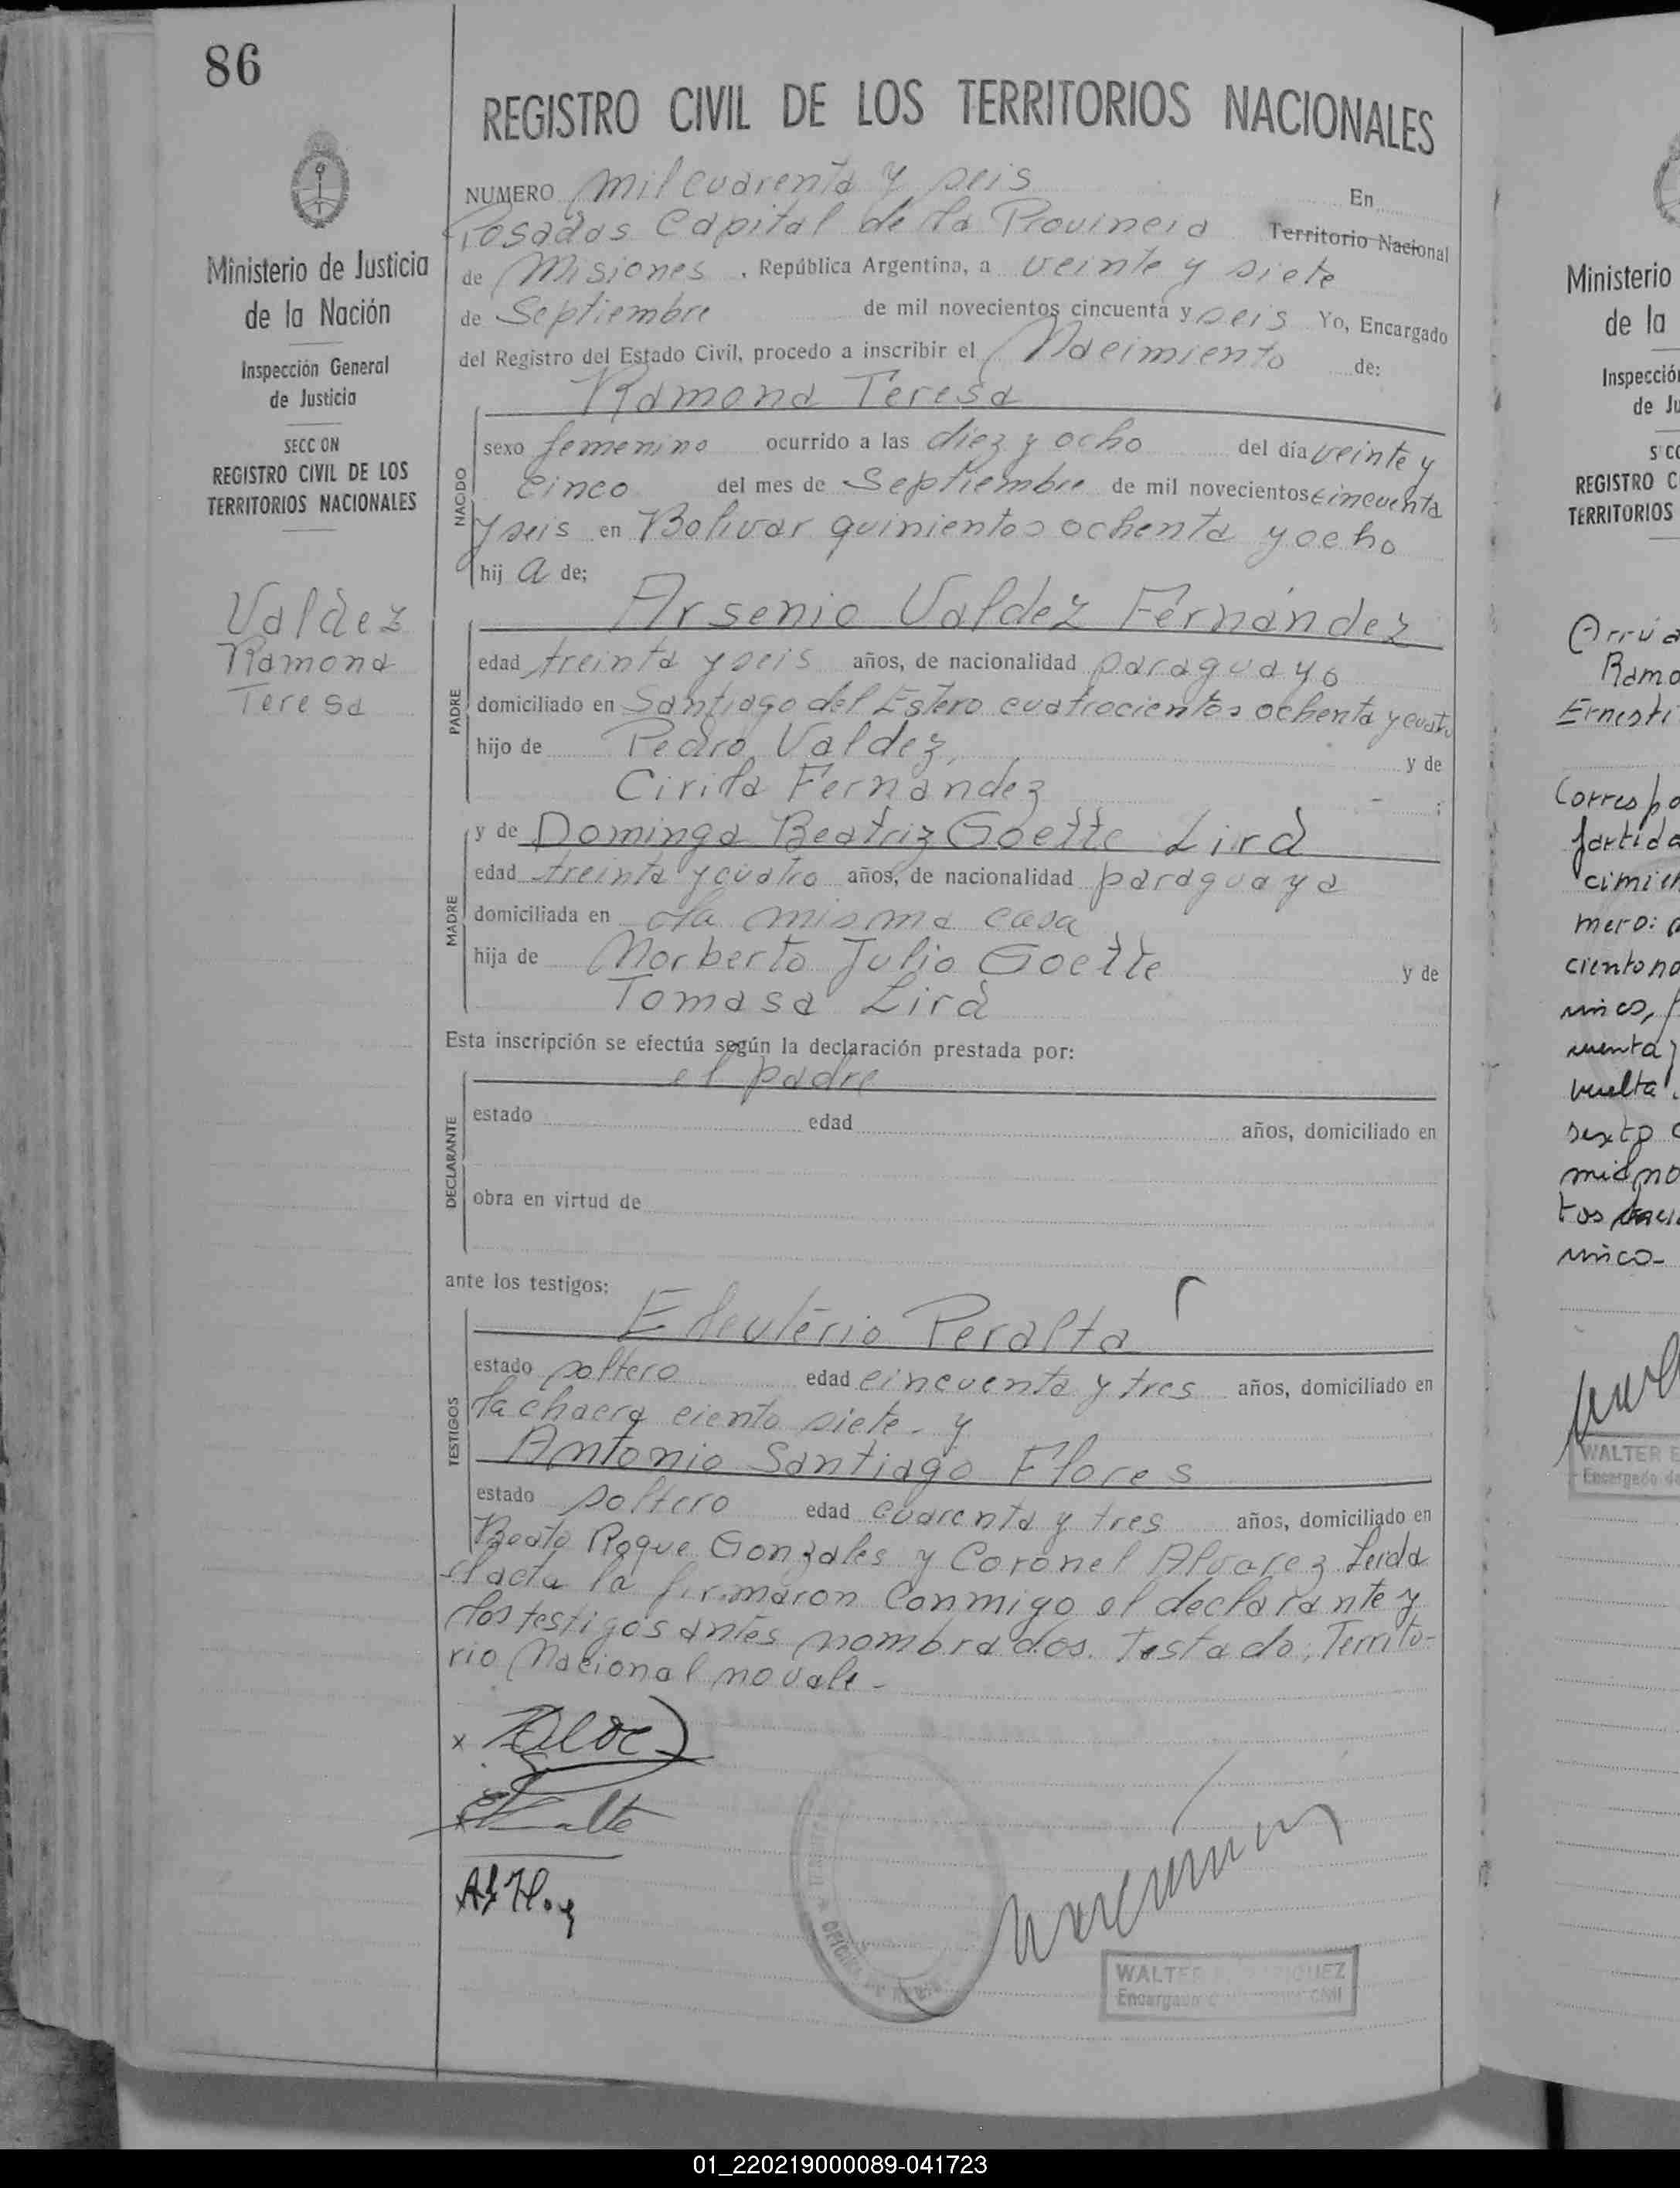 86
REGISTRO CIVIL DE LOS TERRITORIOS NACIONALES
Ministerio de Justicia
de la Nación
Inspección General
de Justicia
SECC ON
REGISTRO CIVIL DE LOS
TERRITORIOS NACIONALES
Valdez
Ramona
Teresa
NUMERO mil cuarenta y seis En
Posadas Capital de la Provincia Territorio Nacional
de Misiones, República Argentina, a veinte y siete
de Septiembre de mil novecientos cincuenta y seis Yo, Encargado
del Registro del Estado Civil, procedo a inscribir el Nacimiento de:
Ramona Teresa
NACIDO
sexo femenino ocurrido a las diez y ocho del día veinte y
cinco del mes de Septiembre de mil novecientos cincuenta
y seis en Bolivar quinientos ochenta y ocho
hij a de;
Arsenio Valdez Fernández
PADRE
edad treinta y seis años, de nacionalidad paraguayo
domiciliado en Santiago del Estero cuatrocientos ochenta y cuatro
hijo de Pedro Valdez, y de
Cirila Fernandez ;
MADRE
y de Dominga Beatriz Goette Lird
edad treinta y cuatro años, de nacionalidad paraguaya
domiciliada en la misma casa
hija de Norberto Julio Goette y de
Tomasa Lird
Esta inscripción se efectúa según la declaración prestada por:
el padre
DECLARANTE
estado edad años, domiciliado en
obra en virtud de
ante los testigos:
Eleuterio Peralta
TESTIGOS
estado soltero edad cincuenta y tres años, domiciliado en
la chacra ciento siete. y
Antonio Santiago Flores
estado soltero edad cuarenta y tres años, domiciliado en
Beato Roque Gonzales y Coronel Alvarez Leida
el acta la firmaron conmigo el declarante y
los testigos antes nombrados. Testado: Territo-
rio Nacional no vale -
WALTER
Encargado
Ministerio
de la
Inspección
de Ju
REGISTRO C
TERRITORIOS
Arrúa
Ramo
Ernesti
Correspo
partida
cimien
mero:
ciento no
uinco,
cuenta y
vuelta.
sexto
mid no
tos
uinco-
WALTER E
Encargado de
01_220219000089-041723